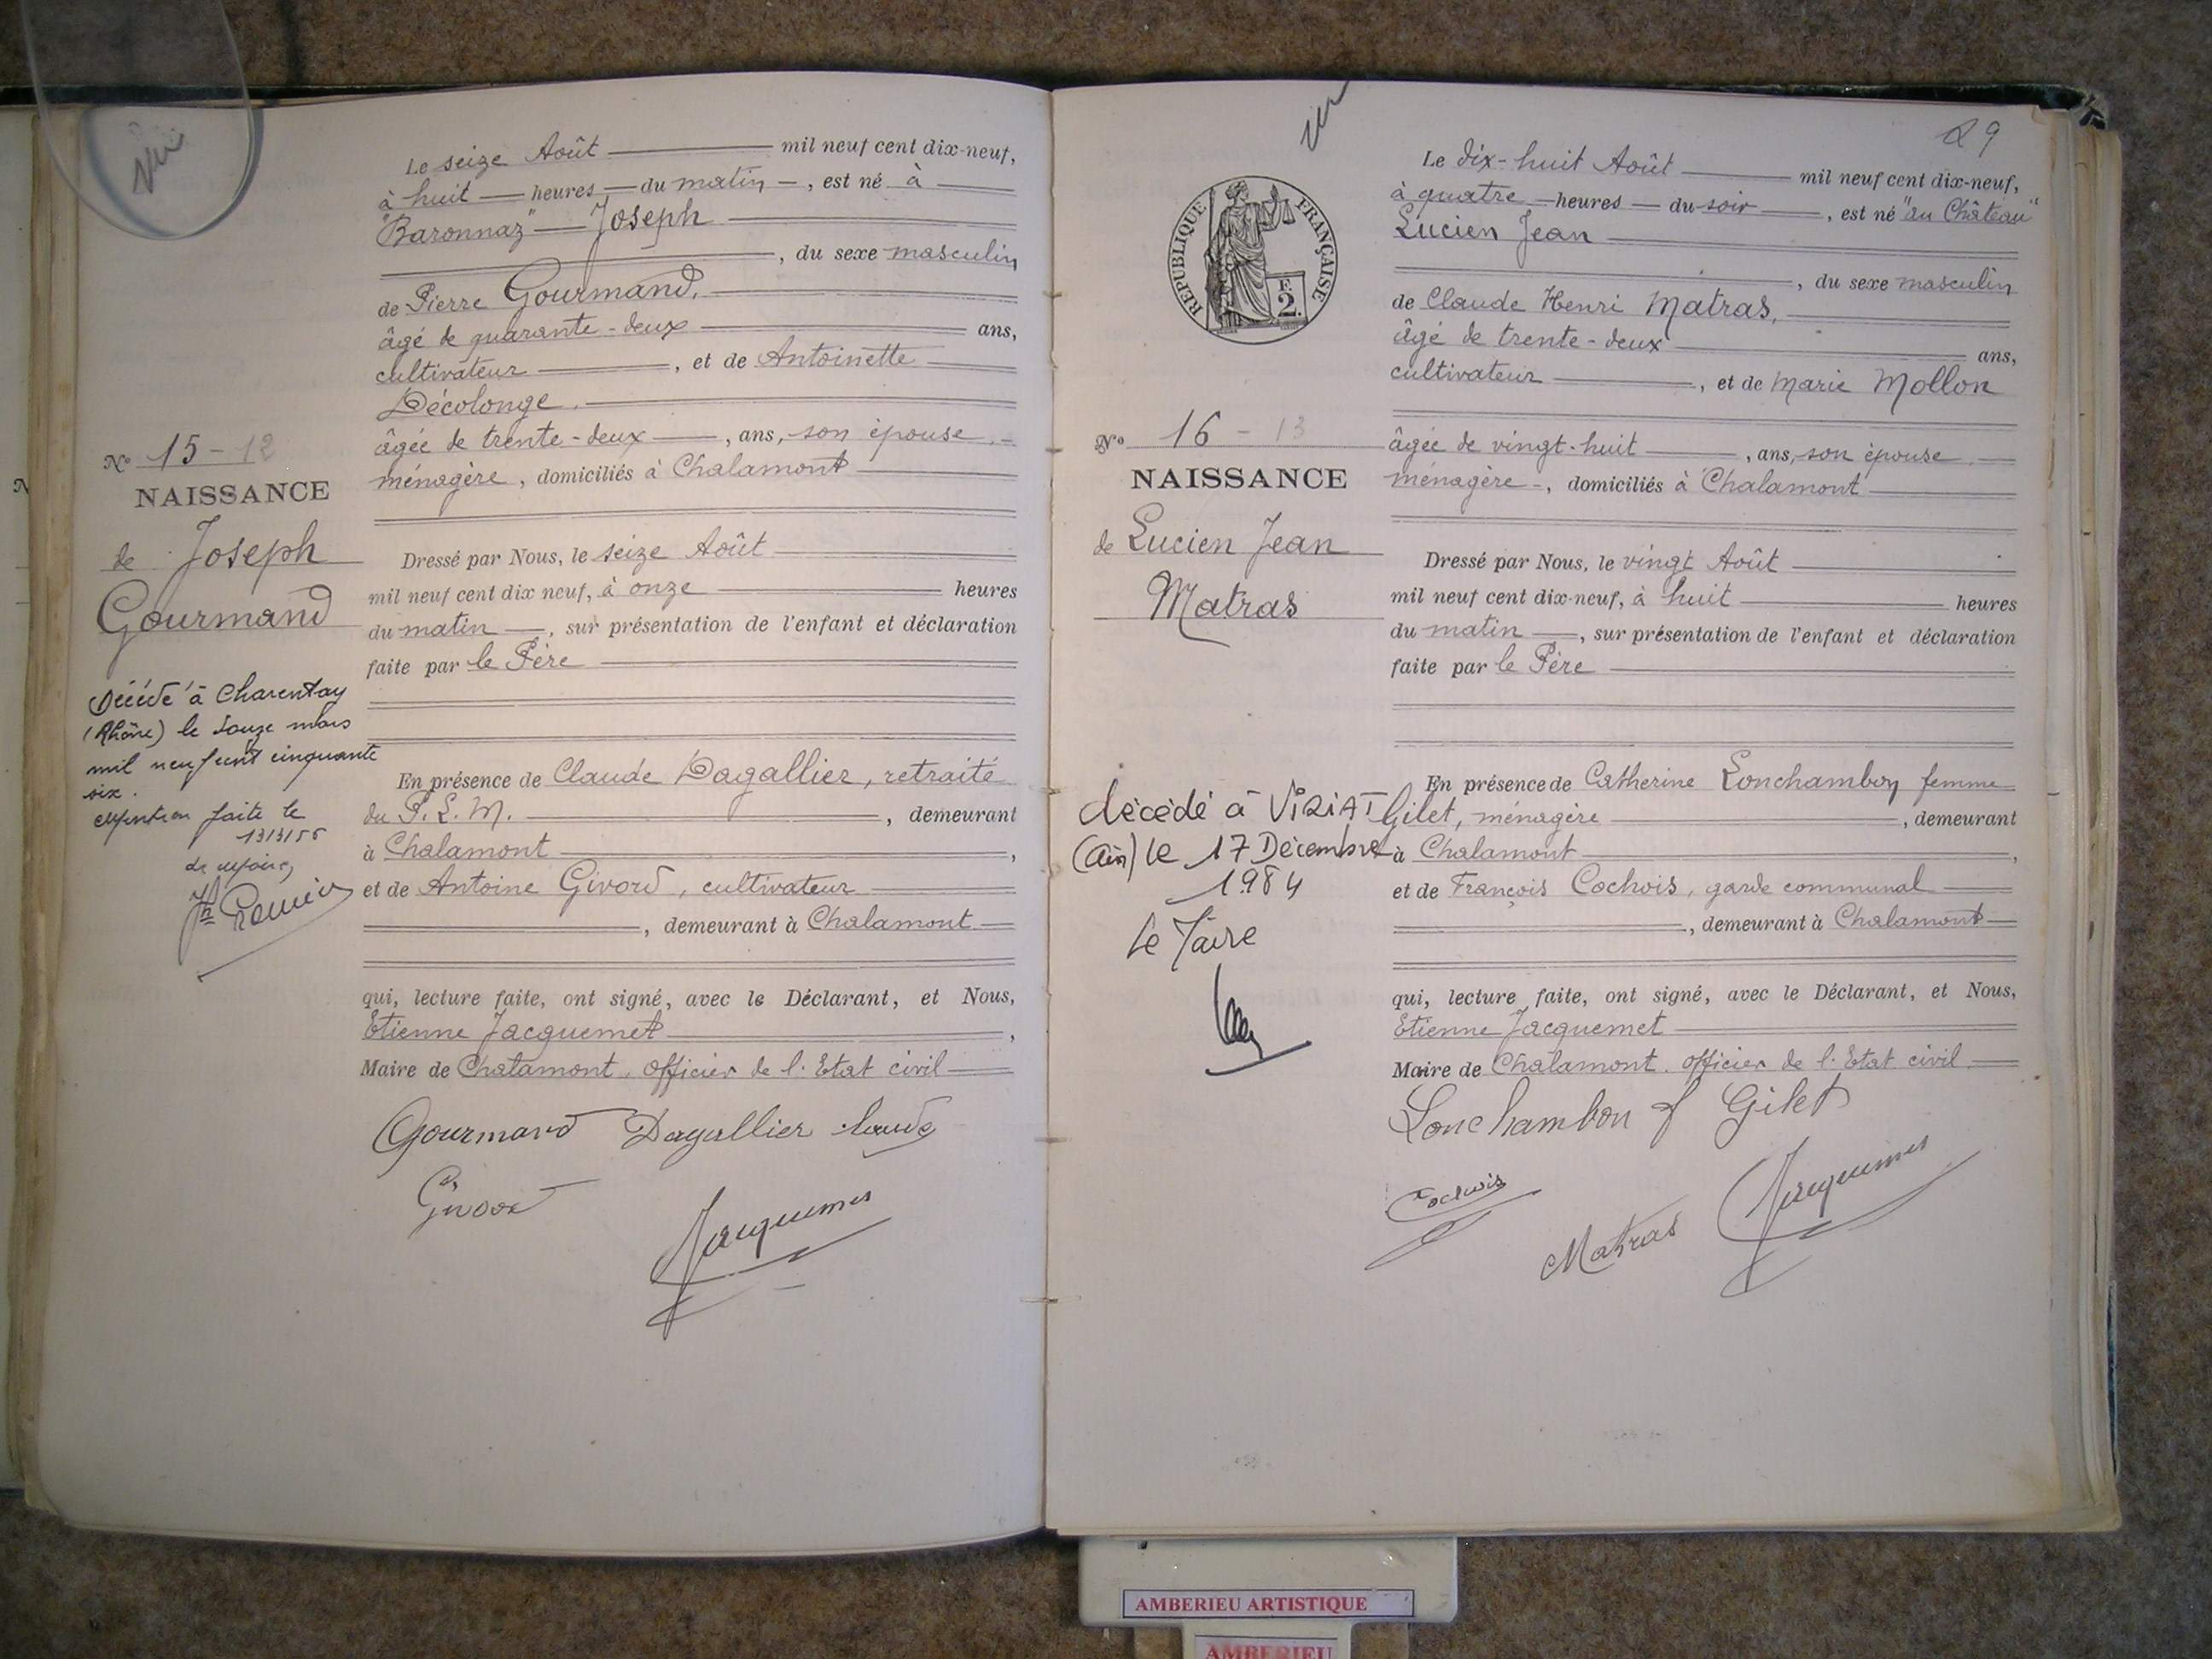 Le seize Août mil neuf cent dix-neuf,
à huit heures du matin, est né à
"Baronnaz" Joseph
, du sexe masculin
de Pierre Gourmand,
âgé de quarante-deux ans,
cultivateur, et de Antoinette
Décolonge.
âgée de trente-deux, ans, son épouse.
ménagère, domiciliés à Chalamont
Nº 15-12
NAISSANCE
de Joseph
Gourmand
Dressé par Nous, le seize Août
mil neuf cent dix neuf, à onze heures
du matin, sur présentation de l'enfant et déclaration
faite par le Père
Décédé à Charentay
(Rhône) le douze mars
mil neuf cent cinquante
six.
Mention faite le
13/3/56
En présence de Claude Dagallier, retraité
du P. L. M., demeurant
à Chalamont,
et de Antoine Givord, cultivateur
, demeurant à Chalamont
qui, lecture faite, ont signé, avec le Déclarant, et Nous,
Etienne Jacquemet,
Maire de Chalamont, officier de l'Etat civil
Gourmand Dagallier Claude
Givord
Jacquemet
29
Le dix-huit Août mil neuf cent dix-neuf,
à quatre heures du soir, est né "au Château"
Lucien Jean
, du sexe masculin
de Claude Henri Matras,
âgé de trente-deux ans,
cultivateur, et de Marie Mollon
âgée de vingt-huit, ans, son épouse.
ménagère, domiciliés à Chalamont
RÉPUBLIQUE FRANÇAISE
F.
2.
Nº 16-13
NAISSANCE
de Lucien Jean
Matras
Dressé par Nous, le vingt Août
mil neuf cent dix-neuf, à huit heures
du matin, sur présentation de l'enfant et déclaration
faite par le Père
En présence de Catherine Lonchambon femme
Gilet, ménagère, demeurant
à Chalamont,
et de François Cochois, garde communal
, demeurant à Chalamont
décédé à VIRIAT
(Ain) le 17 Décembre
1984
Le Maire
qui, lecture faite, ont signé, avec le Déclarant, et Nous,
Etienne Jacquemet
Maire de Chalamont. officier de l'Etat civil.
Lonchambon f Gilet
Cochois
Matras
Jacquemet
AMBERIEU ARTISTIQUE
AMBERIEU